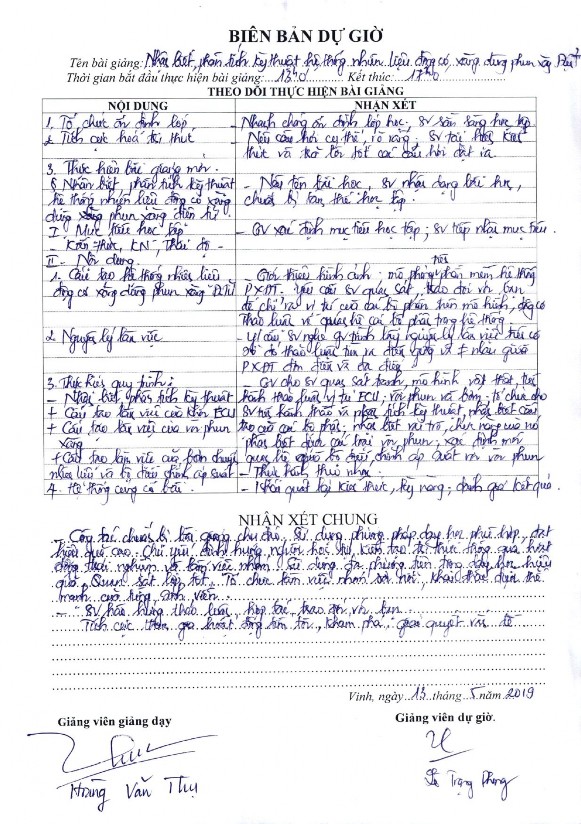 BIÊN BẢN DỰ GIỜ
Tên bài giảng: Nhận biết, phân tích kỹ thuật hệ thống nhiên liệu động cơ xăng dùng phun xăng
Thời gian bắt đầu thực hiện bài giảng: 13h0 Kết thúc: 17h0
THEO DÕI THỰC HIỆN BÀI GIẢNG
NỘI DUNG NHẬN XÉT
1. Tổ chức ổn định lớp - Nhanh chóng ổn định lớp học, SV sẵn sàng học tập
2. Tích cực hoá tri thức - Nêu câu hỏi cụ thể, rõ ràng; SV tái hiện kiến
thức và trả lời tốt các câu hỏi đặt ra.
3. Thực hiện bài giảng mới
§ Nhận biết, phân tích kỹ thuật - Nêu tên bài học, SV nhận dạng bài học,
hệ thống nhiên liệu động cơ xăng chuẩn bị tâm thế học tập.
dùng phun xăng điện tử
I - Mục tiêu học tập - GV xác định mục tiêu học tập; SV tiếp nhận mục tiêu.
- Kiến thức, KN, Thái độ -
II - Nội dung.
1. Cấu tạo hệ thống nhiên liệu - Giới thiệu hình ảnh; mô phỏng phần mềm hệ thống
động cơ xăng dùng phun xăng PXĐT. Yêu cầu SV quan sát, trao đổi với bạn
để chỉ ra vị trí của các bộ phận trên mô hình, động cơ
Thảo luận về quan hệ các bộ phận trong hệ thống
2. Nguyên lý làm việc - Y/cầu SV nghe GV trình bày nguyên lý làm việc trên cơ
sở đó thảo luận tìm ra điểm giống và ≠ nhau giữa
PXĐT đơn điểm và đa điểm
3. Thực hiện quy trình: GV cho SV quan sát tranh, mô hình vật thật,
- Nhận biết, phân tích kỹ thuật hành thảo luận vị trí ECU; vòi phun và bơm; tổ chức cho
+ Cấu tạo làm việc của khối ECU SV thực hành tháo và phân tích kỹ thuật, nhận biết cấu
+ Cấu tạo làm việc của vòi phun tạo của các bộ phận; nhận biết vai trò, chức năng của nó
xăng phân biệt được các loại vòi phun; xác định mối
+ Cấu tạo làm việc của bơm chuyển quan hệ giữa bộ điều chỉnh áp suất với vòi phun
nhiên liệu và bộ điều chỉnh áp suất - Thực hành, thu nhận
4. Hệ thống củng cố bài. - Khái quát lại kiến thức, kỹ năng; đánh giá kết quả.
NHẬN XÉT CHUNG
- Công tác chuẩn bị bài giảng chu đáo, sử dụng phương pháp dạy học phù hợp, đạt
hiệu quả cao. Chú yếu định hướng người học tự kiến tạo tri thức thông qua hoạt
động thực nghiệm và làm việc nhóm. Sử dụng đa phương tiện trong dạy học hiệu
quả, Quan sát lớp tốt. Tổ chức làm việc nhóm sôi nổi, khai thác được thế
mạnh của từng sinh viên.
- SV hào hứng thảo luận, hợp tác, trao đổi với bạn.
Tích cực tham gia hoạt động tìm tòi, khám phá, giải quyết vấn đề
Vinh, ngày 13 tháng 5 năm 2019
Giảng viên giảng dạy Giảng viên dự giờ.
Hoàng Văn Thụ Trọng Phong